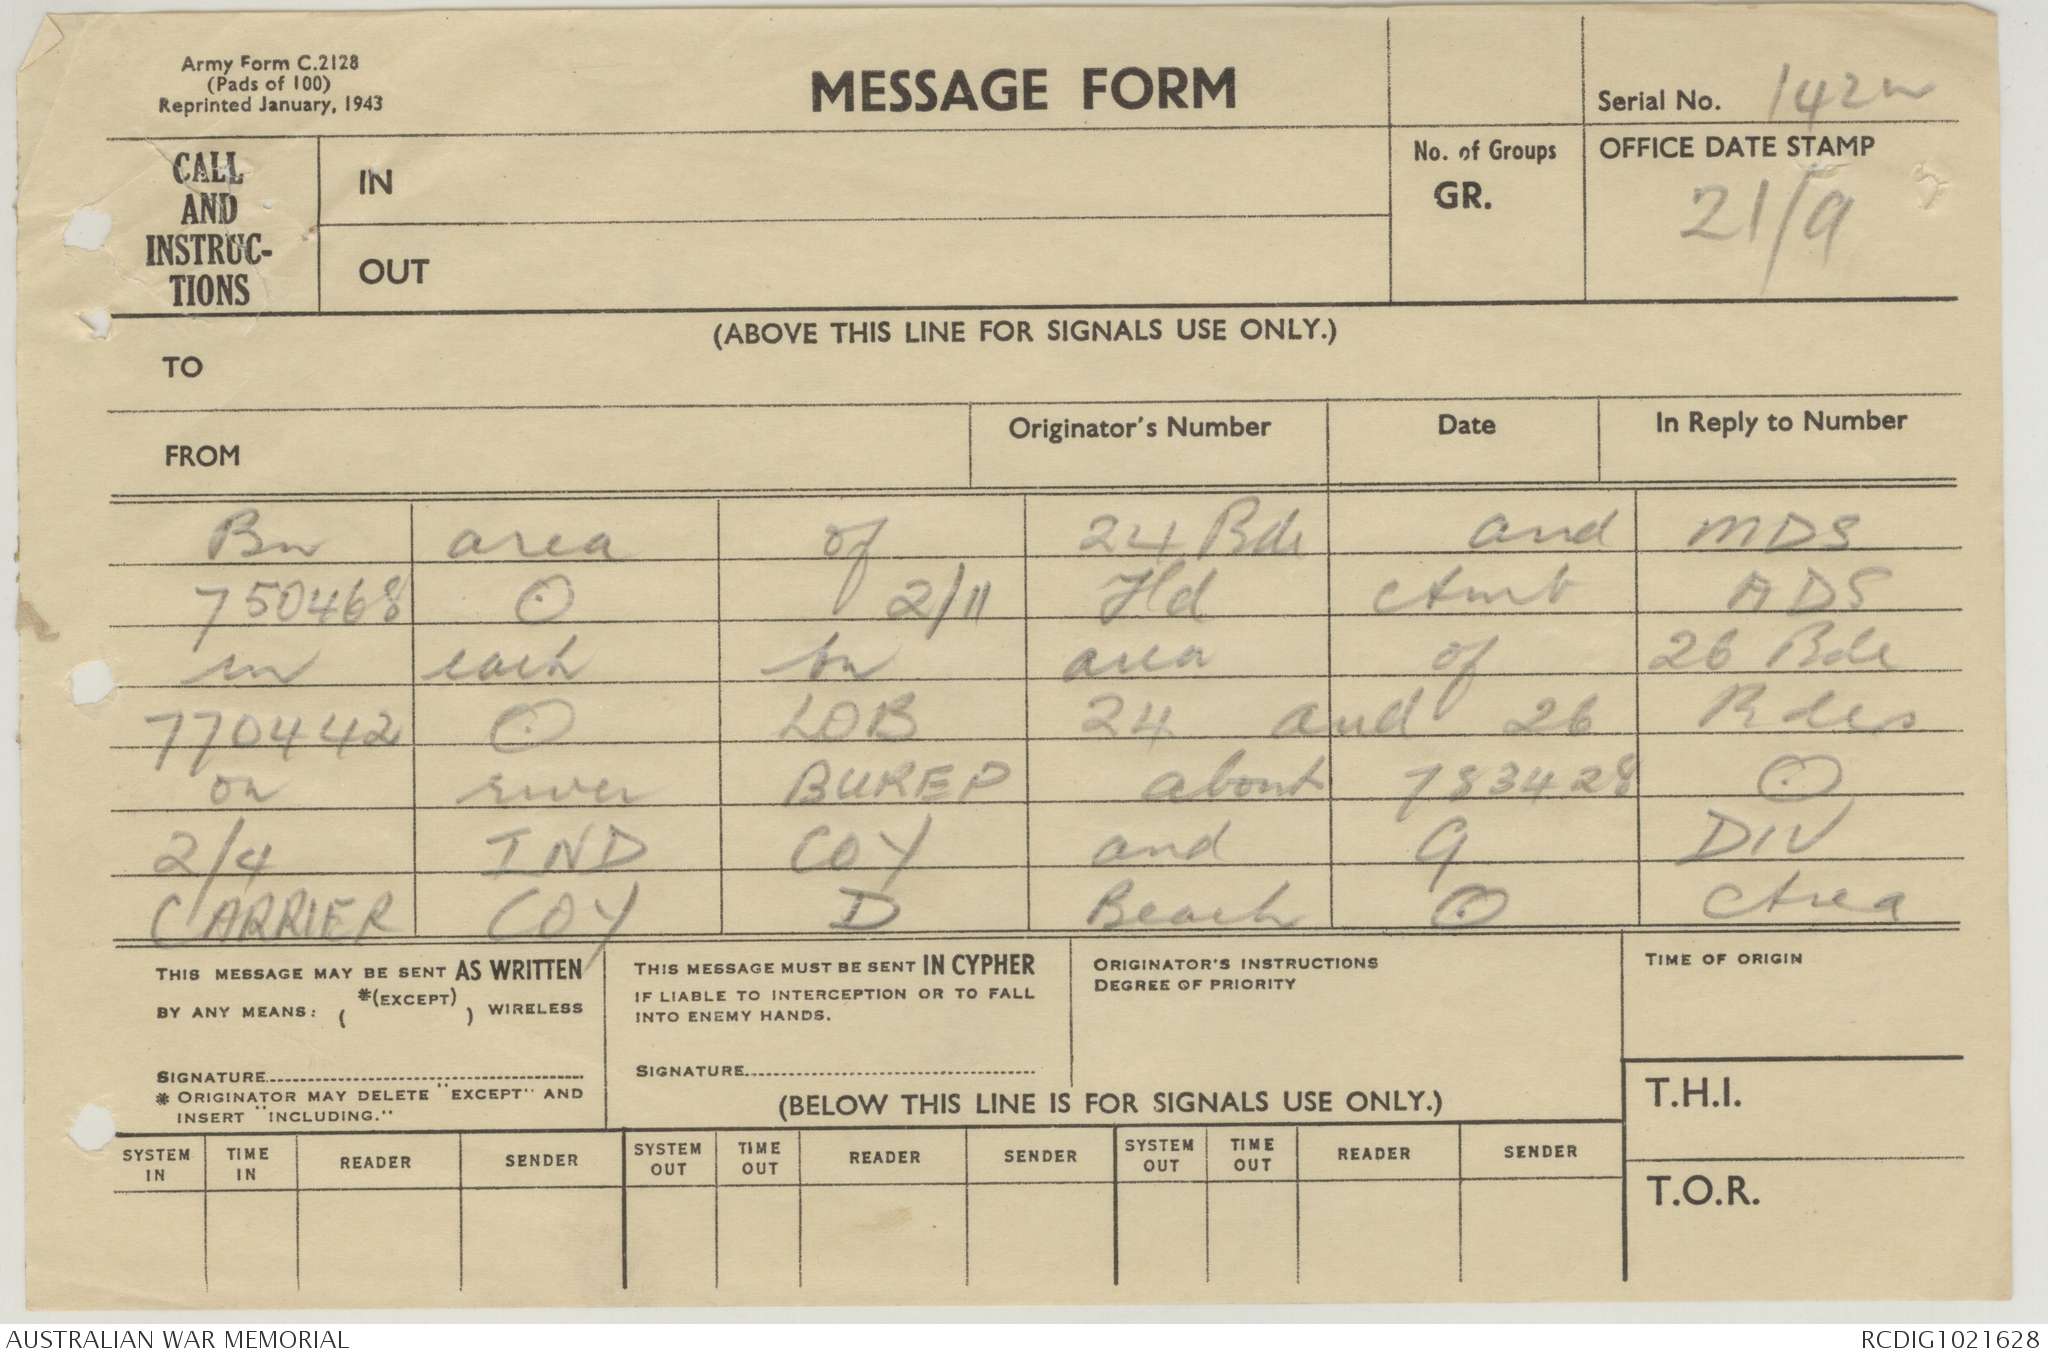 Army Form C.2128
(Pads of 100)
Reprinted January, 1943
MESSAGE FORM
Serial No. 142
CALL AND INSTRUC-TIONS
IN
OUT
No. of Groups
GR.
OFFICE DATE STAMP
21/9
(ABOVE THIS LINE FOR SIGNALS USE ONLY.)
TO
FROM
Originator's Number
Date
In Reply to Number
Bn area of 24 Bde and MDS
750468 ⊙ 2/11 Fld Amb ADS
in each bn area of 26 Bde
770442 ⊙ LOB 24 and 26 Bdes
on river BUREP about 783428 ⊙
2/4 IND COY and 9 DIV
CARRIER COY D Beach ⊙ Area
THIS MESSAGE MAY BE SENT AS WRITTEN
BY ANY MEANS: ( *(EXCEPT) ) WIRELESS
SIGNATURE
* ORIGINATOR MAY DELETE "EXCEPT" AND
INSERT "INCLUDING."
THIS MESSAGE MUST BE SENT IN CYPHER
IF LIABLE TO INTERCEPTION OR TO FALL
INTO ENEMY HANDS.
SIGNATURE
ORIGINATOR'S INSTRUCTIONS
DEGREE OF PRIORITY
TIME OF ORIGIN
(BELOW THIS LINE IS FOR SIGNALS USE ONLY.)
T.H.I.
T.O.R.
SYSTEM IN TIME IN READER SENDER SYSTEM OUT TIME OUT READER SENDER SYSTEM OUT TIME OUT READER SENDER
AUSTRALIAN WAR MEMORIAL
RCDIG1021628